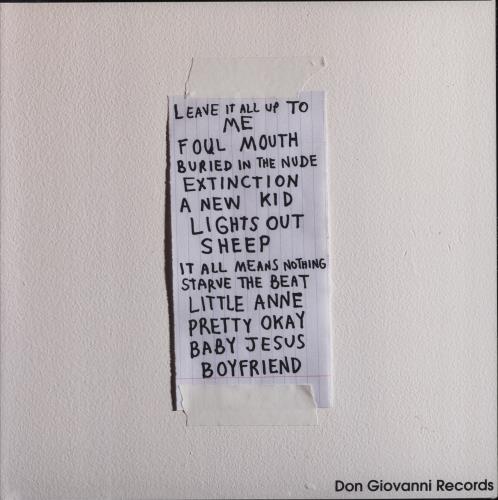 LEAVE IT ALL UP TO
ME
FOUL MOUTH
BURIED IN THE NUDE
EXTINCTION
A NEW KID
LIGHTS OUT
SHEEP
IT ALL MEANS NOTHING
STARVE THE BEAT
LITTLE ANNE
PRETTY OKAY
BABY JESUS
BOYFRIEND
Don Giovanni Records